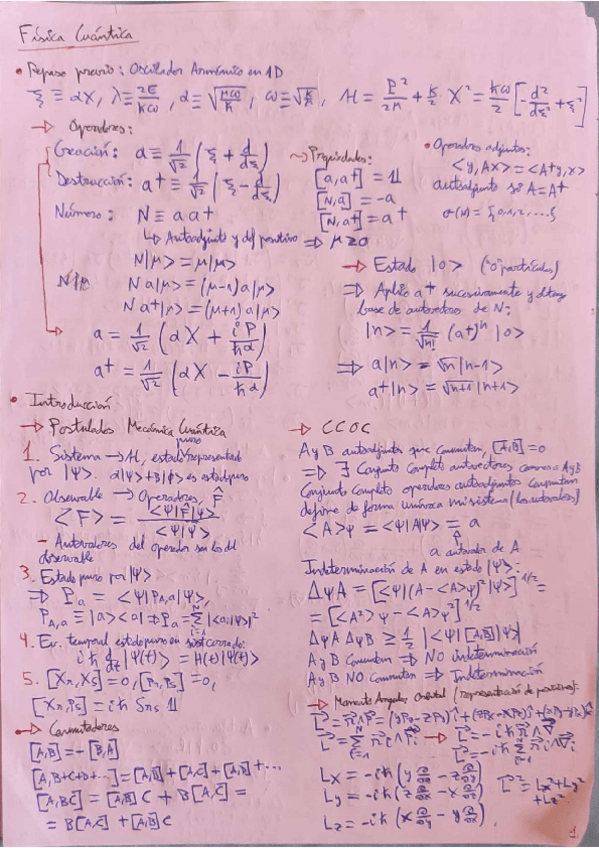 Física Cuántica
• Repaso previo: Oscilador Armónico en 1D
ξ ≡ αX, λ ≡ 2E/ħω, α ≡ √(μω/ħ), ω ≡ √(k/μ), H = P²/2μ + k/2 · X² = ħω/2 [-d²/dξ² + ξ²]
→ Operadores:
Creación: a ≡ 1/√2 (ξ + d/dξ)
Destrucción: a⁺ ≡ 1/√2 (ξ - d/dξ)
Número: N ≡ a a⁺
↳ Autoadjunto y def positivo ⇒ μ ≥ 0
N|μ> = μ|μ>
N a|μ> = (μ-1) a|μ>
N a⁺|μ> = (μ+1) a|μ>
→ a = 1/√2 (αX + iP/ħα)
a⁺ = 1/√2 (αX - iP/ħα)
~> Propiedades:
[a, a⁺] = 1
[N, a] = -a
[N, a⁺] = a⁺
• Operadores adjuntos:
<y, Ax> = <A⁺y, x>
autoadjunto si A = A⁺
σ(N) = {0,1,2,...}
→ Estado |0> ("0" partículas)
⇒ Aplico a⁺ sucesivamente y obtengo
base de autovectores de N:
|n> = 1/√n! (a⁺)ⁿ |0>
⇒ a|n> = √n |n-1>
a⁺|n> = √n+1 |n+1>
• Introducción
→ Postulados Mecánica Cuántica
1. Sistema → H, estado puro representado
por |Ψ>. α|Ψ> + β|ϕ> es estado puro
2. Observable → Operadores, F̂
<F> = <Ψ|F̂|Ψ> / <Ψ|Ψ>
- Autovalores del operador son los del
observable
3. Estado puro por |Ψ>
⇒ Pₐ = <Ψ|P_A,a|Ψ>,
P_A,a ≡ |a><a| ⇒ Pₐ = Σ |<aᵢ|Ψ>|²
4. Ev. temporal estado puro en sist cerrado:
iħ d/dt |Ψ(t)> = H(t)|Ψ(t)>
5. [Xr, Xs] = 0, [Pr, Ps] = 0,
[Xr, Ps] = iħ δrs 1
• Conmutadores
[A,B] = -[B,A]
[A, B+C+D+...] = [A,B] + [A,C] + [A,D] + ...
[A, BC] = [A,B] C + B[A,C] =
= B[A,C] + [A,B]C
→ CCOC
A y B autoadjuntos que conmutan, [A,B] = 0
⇒ ∃ Conjunto Completo autovectores comunes a A y B
Conjunto Completo operadores autoadjuntos conmutan
define de forma unívoca mi sistema (los autovalores)
<A>Ψ = <Ψ|A|Ψ> = a
a autovalor de A
Indeterminación de A en estado |Ψ>:
ΔΨA = [<Ψ|(A-<A>Ψ)²|Ψ>]^1/2 =
= [<A²>Ψ - <A>Ψ²]^1/2
ΔΨA ΔΨB ≥ 1/2 |<Ψ|[A,B]|Ψ>|
A y B Conmutan ⇒ NO indeterminación
A y B NO Conmutan ⇒ Indeterminación
→ Momento Angular Orbital (representación de posiciones):
L⃗ = r⃗ ∧ P⃗ = (yPz - zPy)î + (zPx - xPz)ĵ + (xPy - yPx)k̂
L⃗ = Σ r⃗ᵢ ∧ P⃗ᵢ → L⃗ = -iħ r⃗ ∧ ∇⃗
L⃗ = -iħ Σ r⃗ᵢ ∧ ∇⃗ᵢ
Lx = -iħ (y ∂/∂z - z ∂/∂y)
Ly = -iħ (z ∂/∂x - x ∂/∂z)
Lz = -iħ (x ∂/∂y - y ∂/∂x).
L⃗² = Lx² + Ly² + Lz²
1